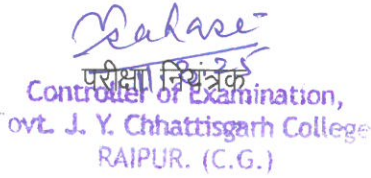 परीक्षा नियंत्रक
Controller of Examination,
ovt. J. Y. Chhattisgarh College
RAIPUR. (C.G.)